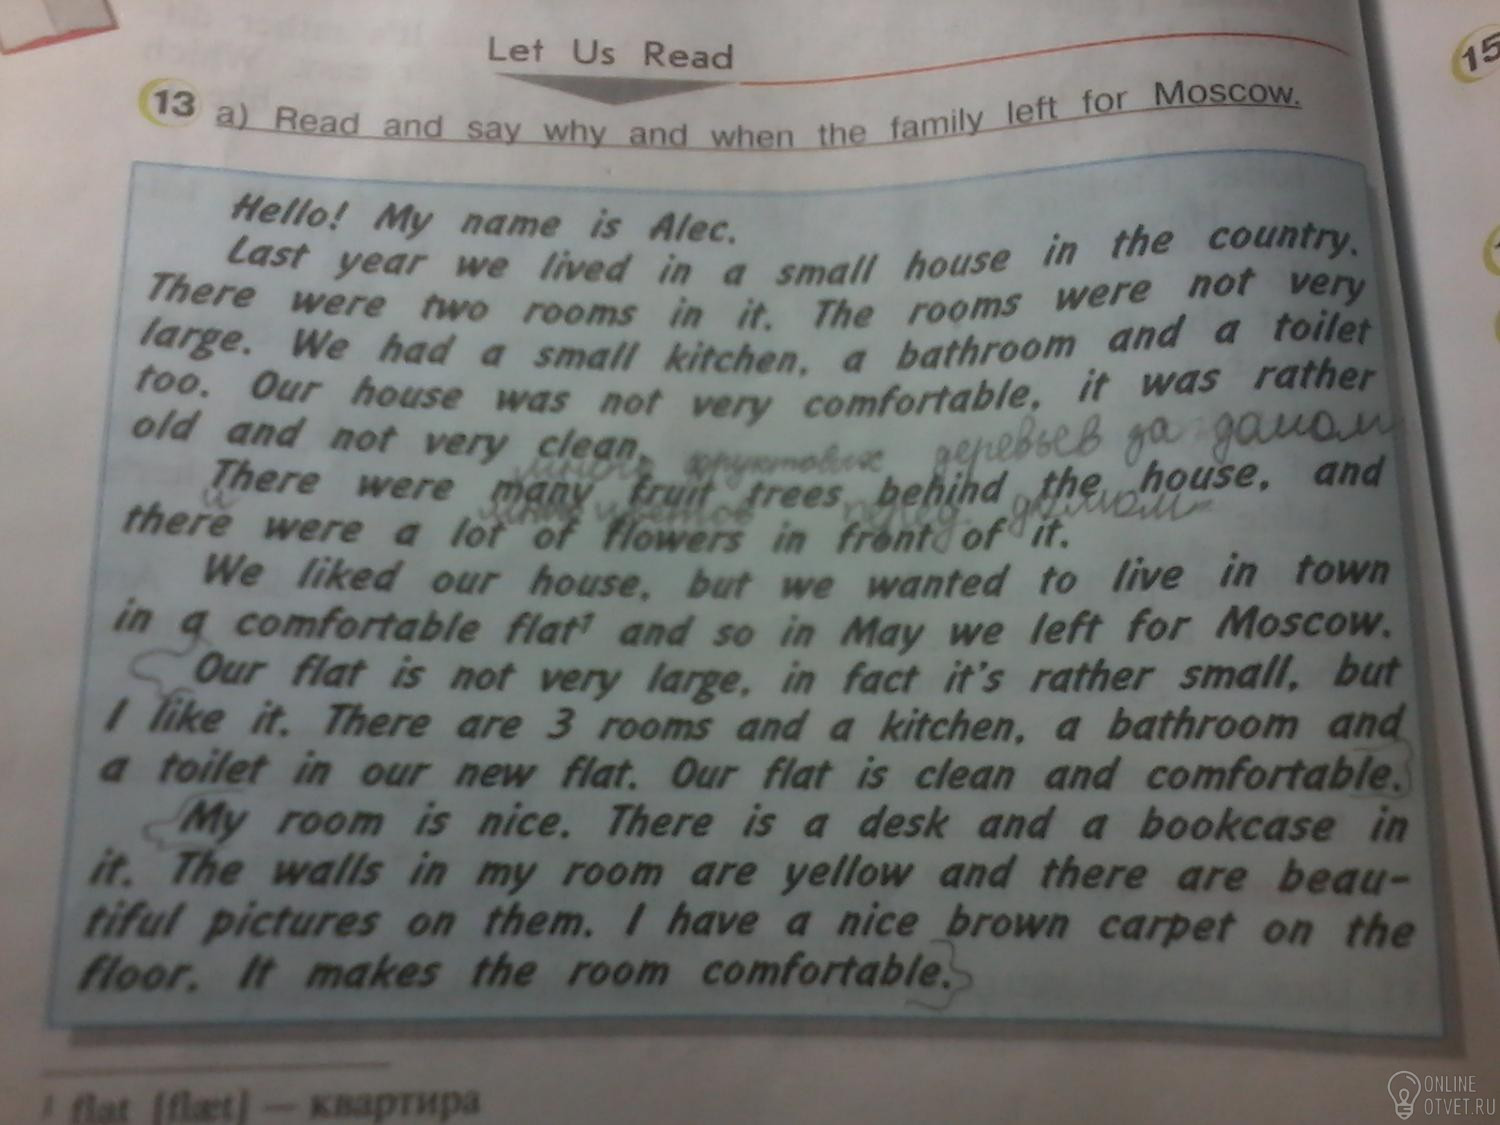 Let Us Read
15
13 a) Read and say why and when the family left for Moscow.
Hello! My name is Alec.
Last year we lived in a small house in the country.
There were two rooms in it. The rooms were not very
large. We had a small kitchen, a bathroom and a toilet
too. Our house was not very comfortable, it was rather
old and not very clean.
много фруктовые деревьев за домом
There were many fruit trees behind the house, and
и много цветов перед домом
there were a lot of flowers in front of it.
We liked our house, but we wanted to live in town
in a comfortable flat¹ and so in May we left for Moscow.
Our flat is not very large, in fact it's rather small, but
I like it. There are 3 rooms and a kitchen, a bathroom and
a toilet in our new flat. Our flat is clean and comfortable.
My room is nice. There is a desk and a bookcase in
it. The walls in my room are yellow and there are beau-
tiful pictures on them. I have a nice brown carpet on the
floor. It makes the room comfortable.
¹ flat [flæt] — квартира
ONLINE
OTVET.RU